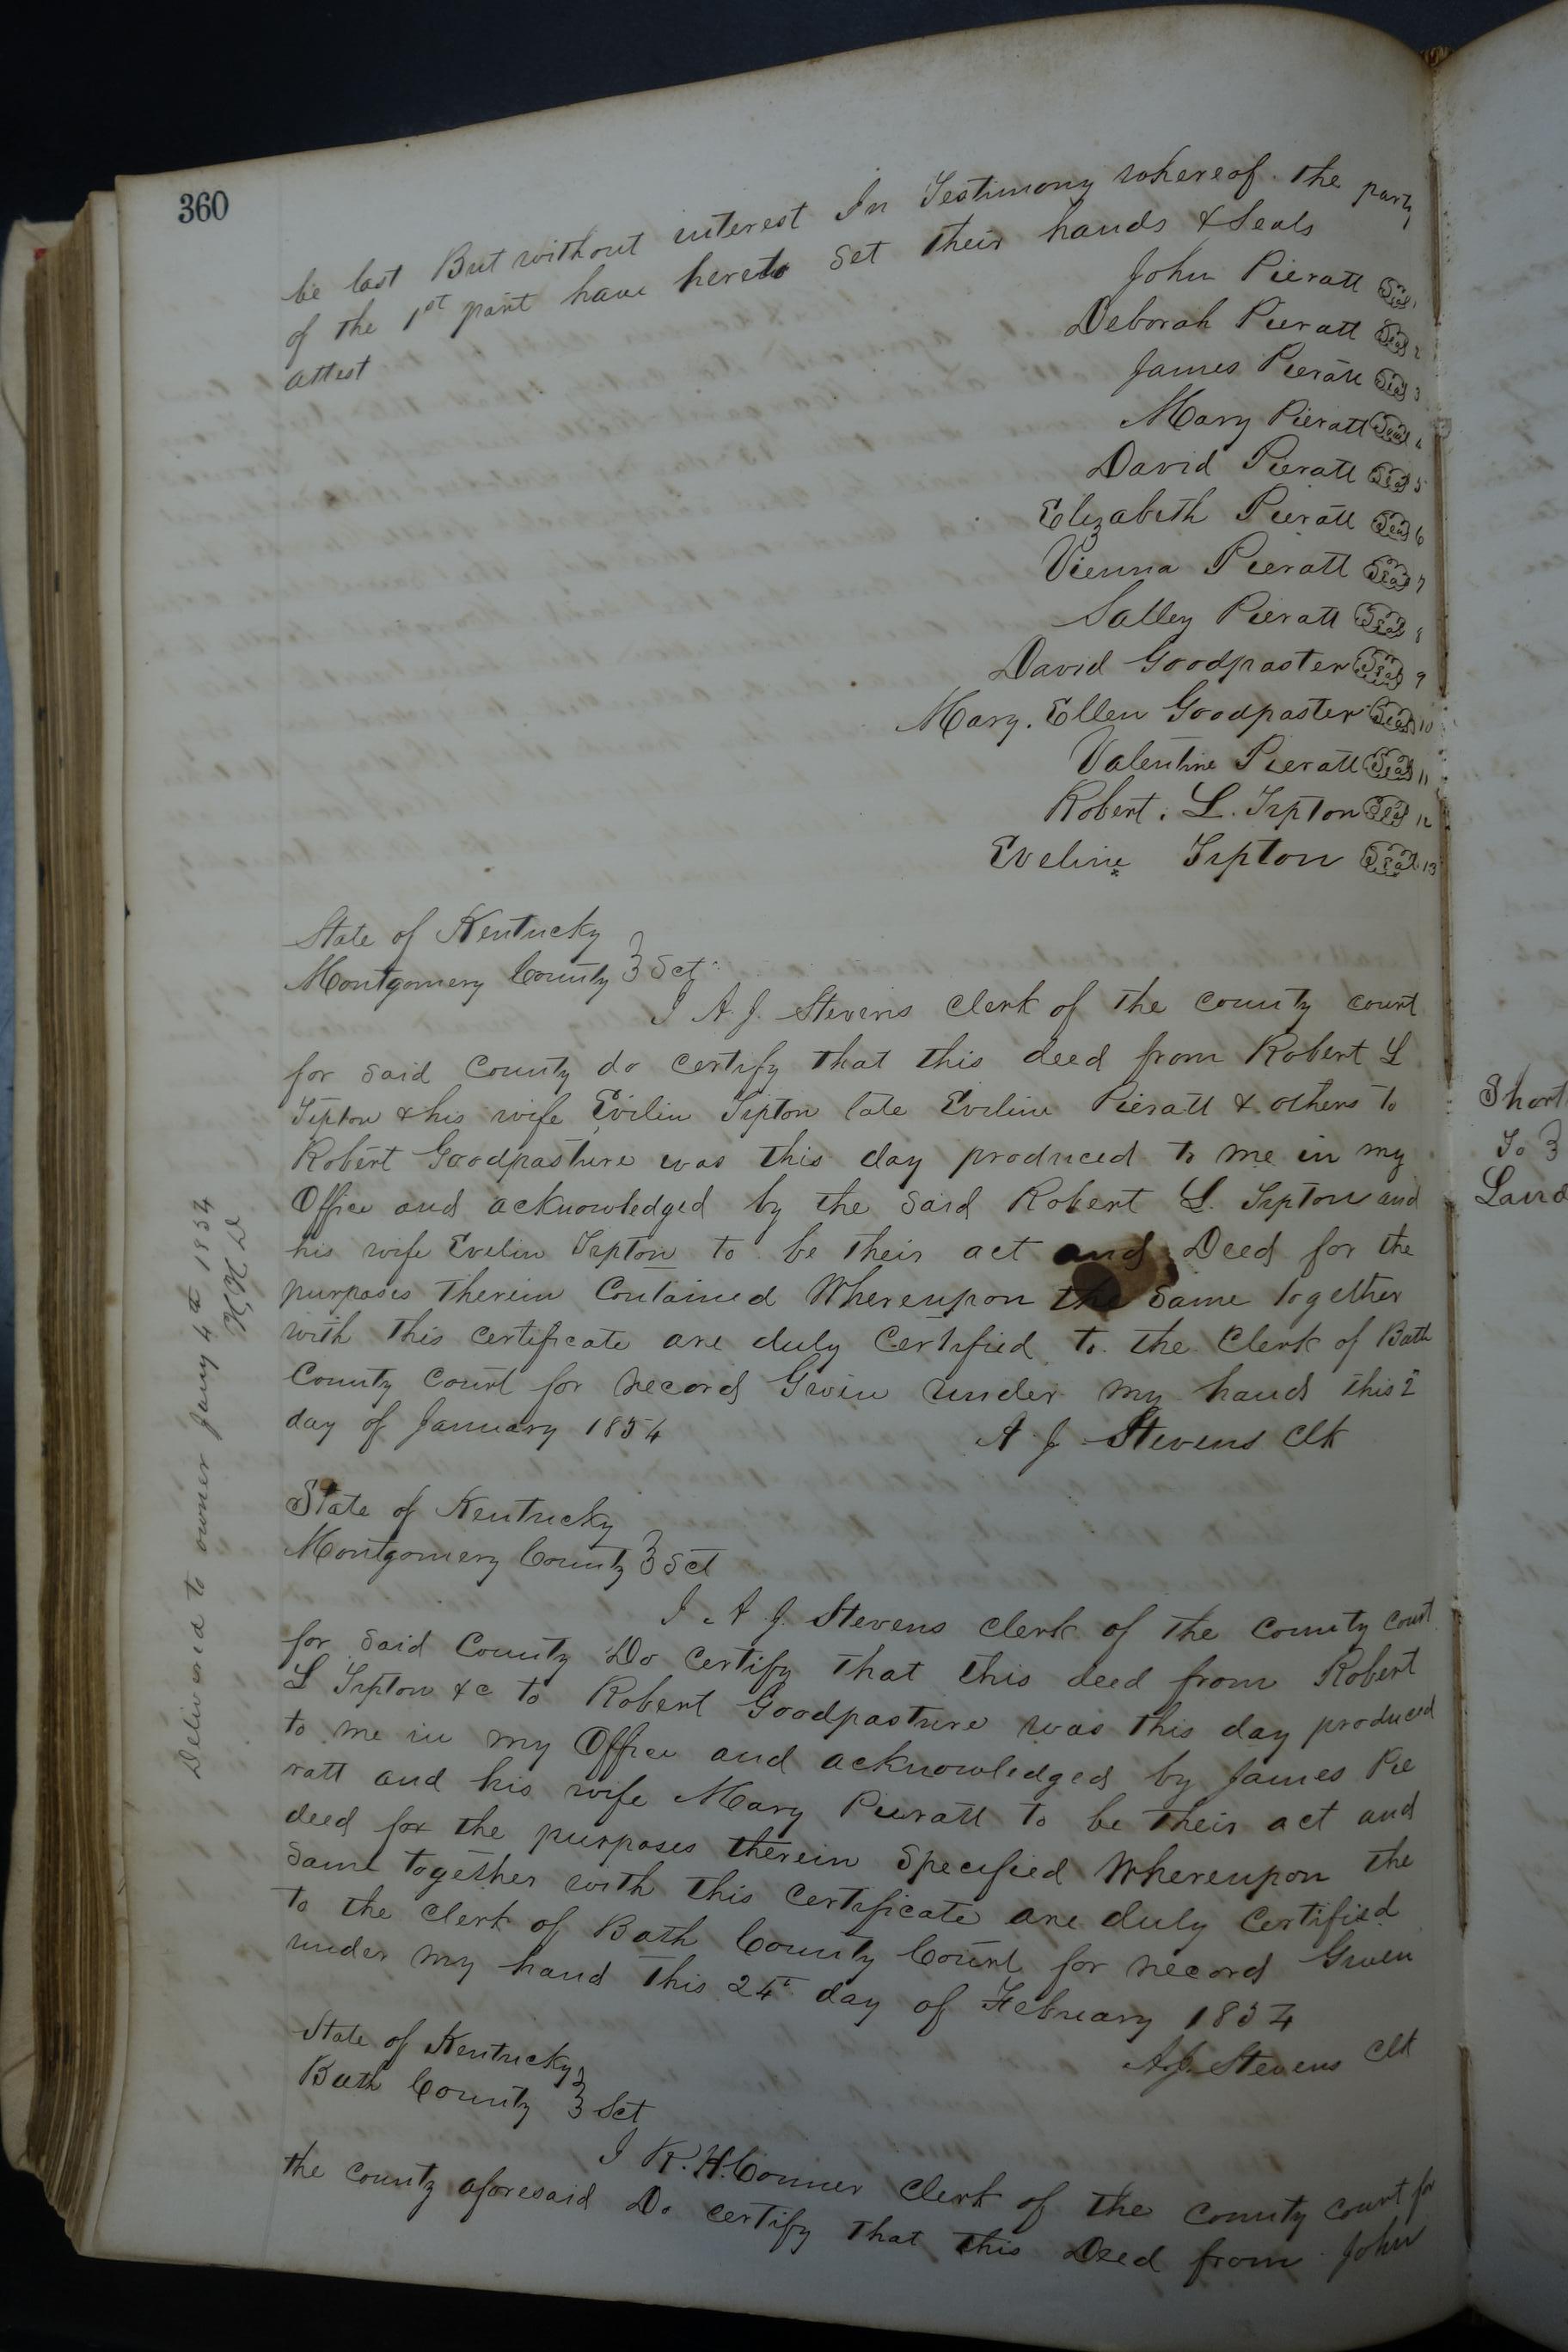 360
be last But without interest In Testimony whereof the party
of the 1st part have hereto set their hands & Seals
attest
John Pieratt Seal 1
Deborah Pieratt Seal 2
James Pieratt Seal 3
Mary Pieratt Seal 4
David Pieratt Seal 5
Elizabeth Pieratt Seal 6
Vienna Pieratt Seal 7
Salley Pieratt Seal 8
David Goodpaster Seal 9
Mary. Ellen Goodpaster Seal 10
Valentine Pieratt Seal 11
Robert. L. Tipton Seal 12
Eveline Tipton Seal 13
State of Kentucky
Montgomery County } Sct
I A. J. Stevens Clerk of the county court
for said County do certify that this deed from Robert L
Tipton & his wife Evilin Tipton late Eveline Pieratt & others to
Robert Goodpasture was this day produced to me in my
Office and acknowledged by the said Robert L. Tipton and
his wife Evelin Tipton to be their act and Deed for the
purposes therein Contained Whereupon the same together
with this certificate are duly Certified to the Clerk of Bath
County Court for record Given under my hand this 2
day of January 1854
A J Stevens Clk
State of Kentucky
Montgomery County } Sct
I A J. Stevens clerk of the County court
for said County Do certify that this deed from Robert
L Tipton &c to Robert Goodpasture was this day produced
to me in my Office and acknowledged by James Pie
ratt and his wife Mary Pieratt to be their act and
deed for the purposes therein specified Whereupon the
same together with this certificate are duly certified
to the clerk of Bath County Court for record Given
under my hand this 24th day of February 1854
A. J. Stevens Clk
State of Kentucky
Bath County } Sct
I R. H. Conner Clerk of the county court for
the county aforesaid Do certify that this Deed from John
Delivered to owner Jany 4th 1854
Short
To }
Land